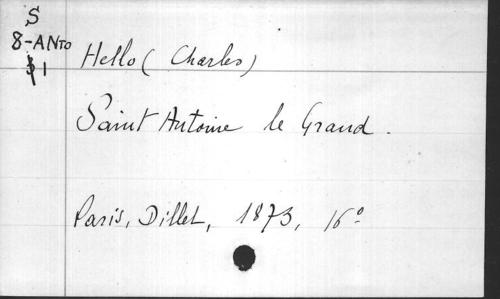 S
8-ANTO
1
Hello (Charles)
Saint Antoine le Grand.
Paris, Dillet, 1873, 16º